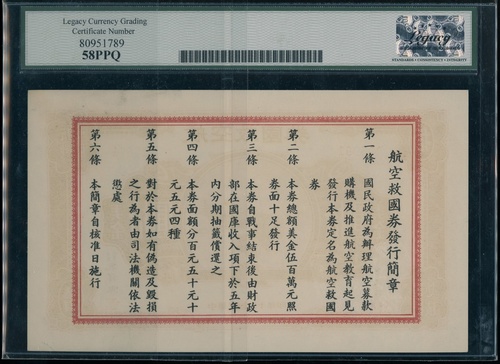 Legacy Currency Grading
Certificate Number
80951789
58PPQ
Legacy
STANDARDS • CONSISTENCY • INTEGRITY
航空救國券發行簡章
第一條 國民政府為辦理航空募款
購機及推進航空教育起見
發行本券定名為航空救國
券
第二條 本券總額美金伍百萬元照
券面十足發行
第三條 本券自戰事結束後由財政
部在國庫收入項下於五年
內分期抽籤償還之
第四條 本券面額分百元五十元十
元五元四種
第五條 對於本券如有偽造及毀損
之行為者由司法機關依法
懲處
第六條 本簡章自核准日施行